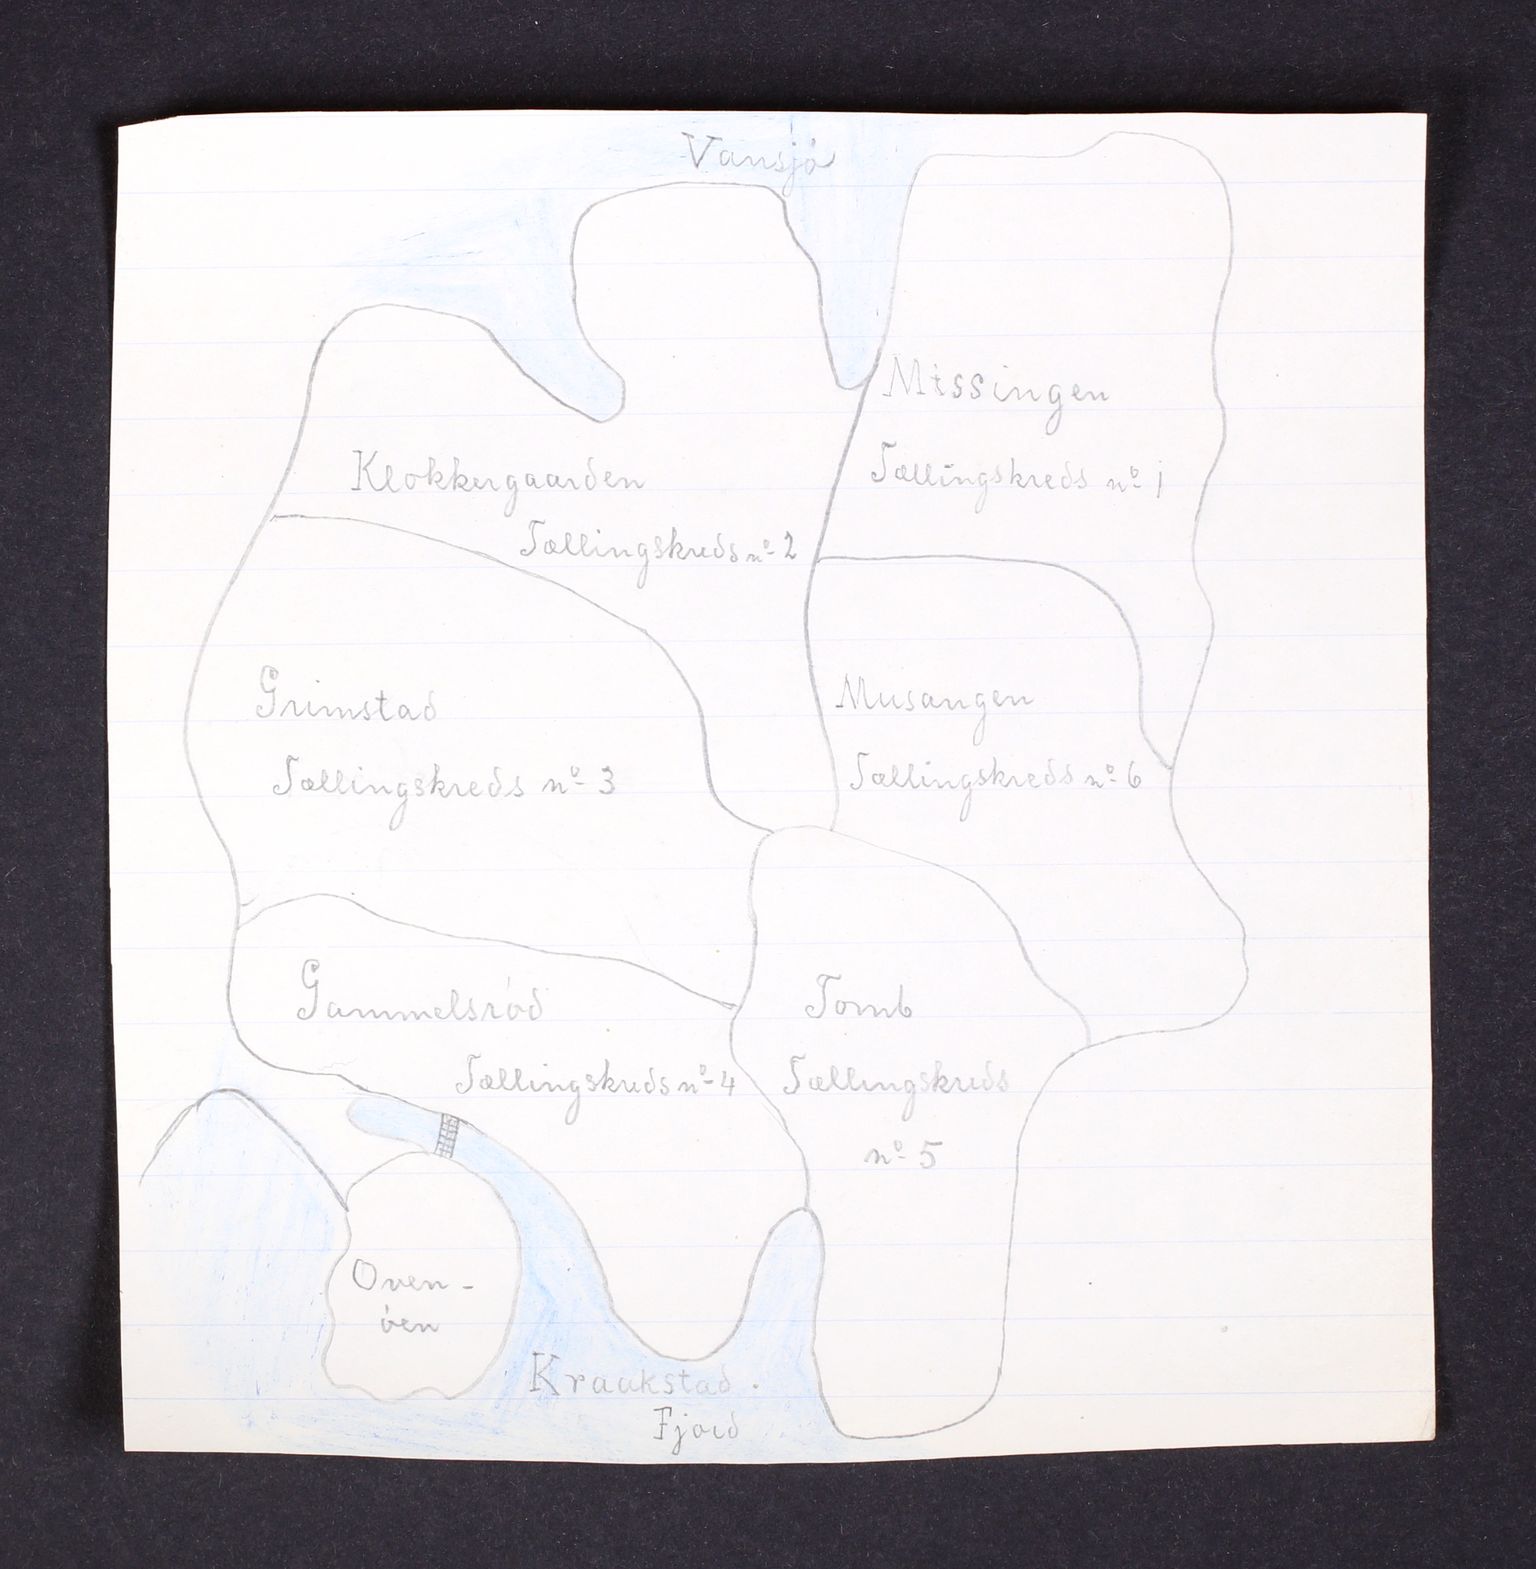 Vansjó
Missingen
Tællingskreds nº 1
Klokkergaarden
Tællingskreds nº 2
Grimstad
Tællingskreds nº 3
Musangen
Tællingskreds nº 6
Gammelsród
Tællingskreds nº 4
Tomb
Tællingskreds
nº 5
Oven-
óen
Kraakstad.
Fjord